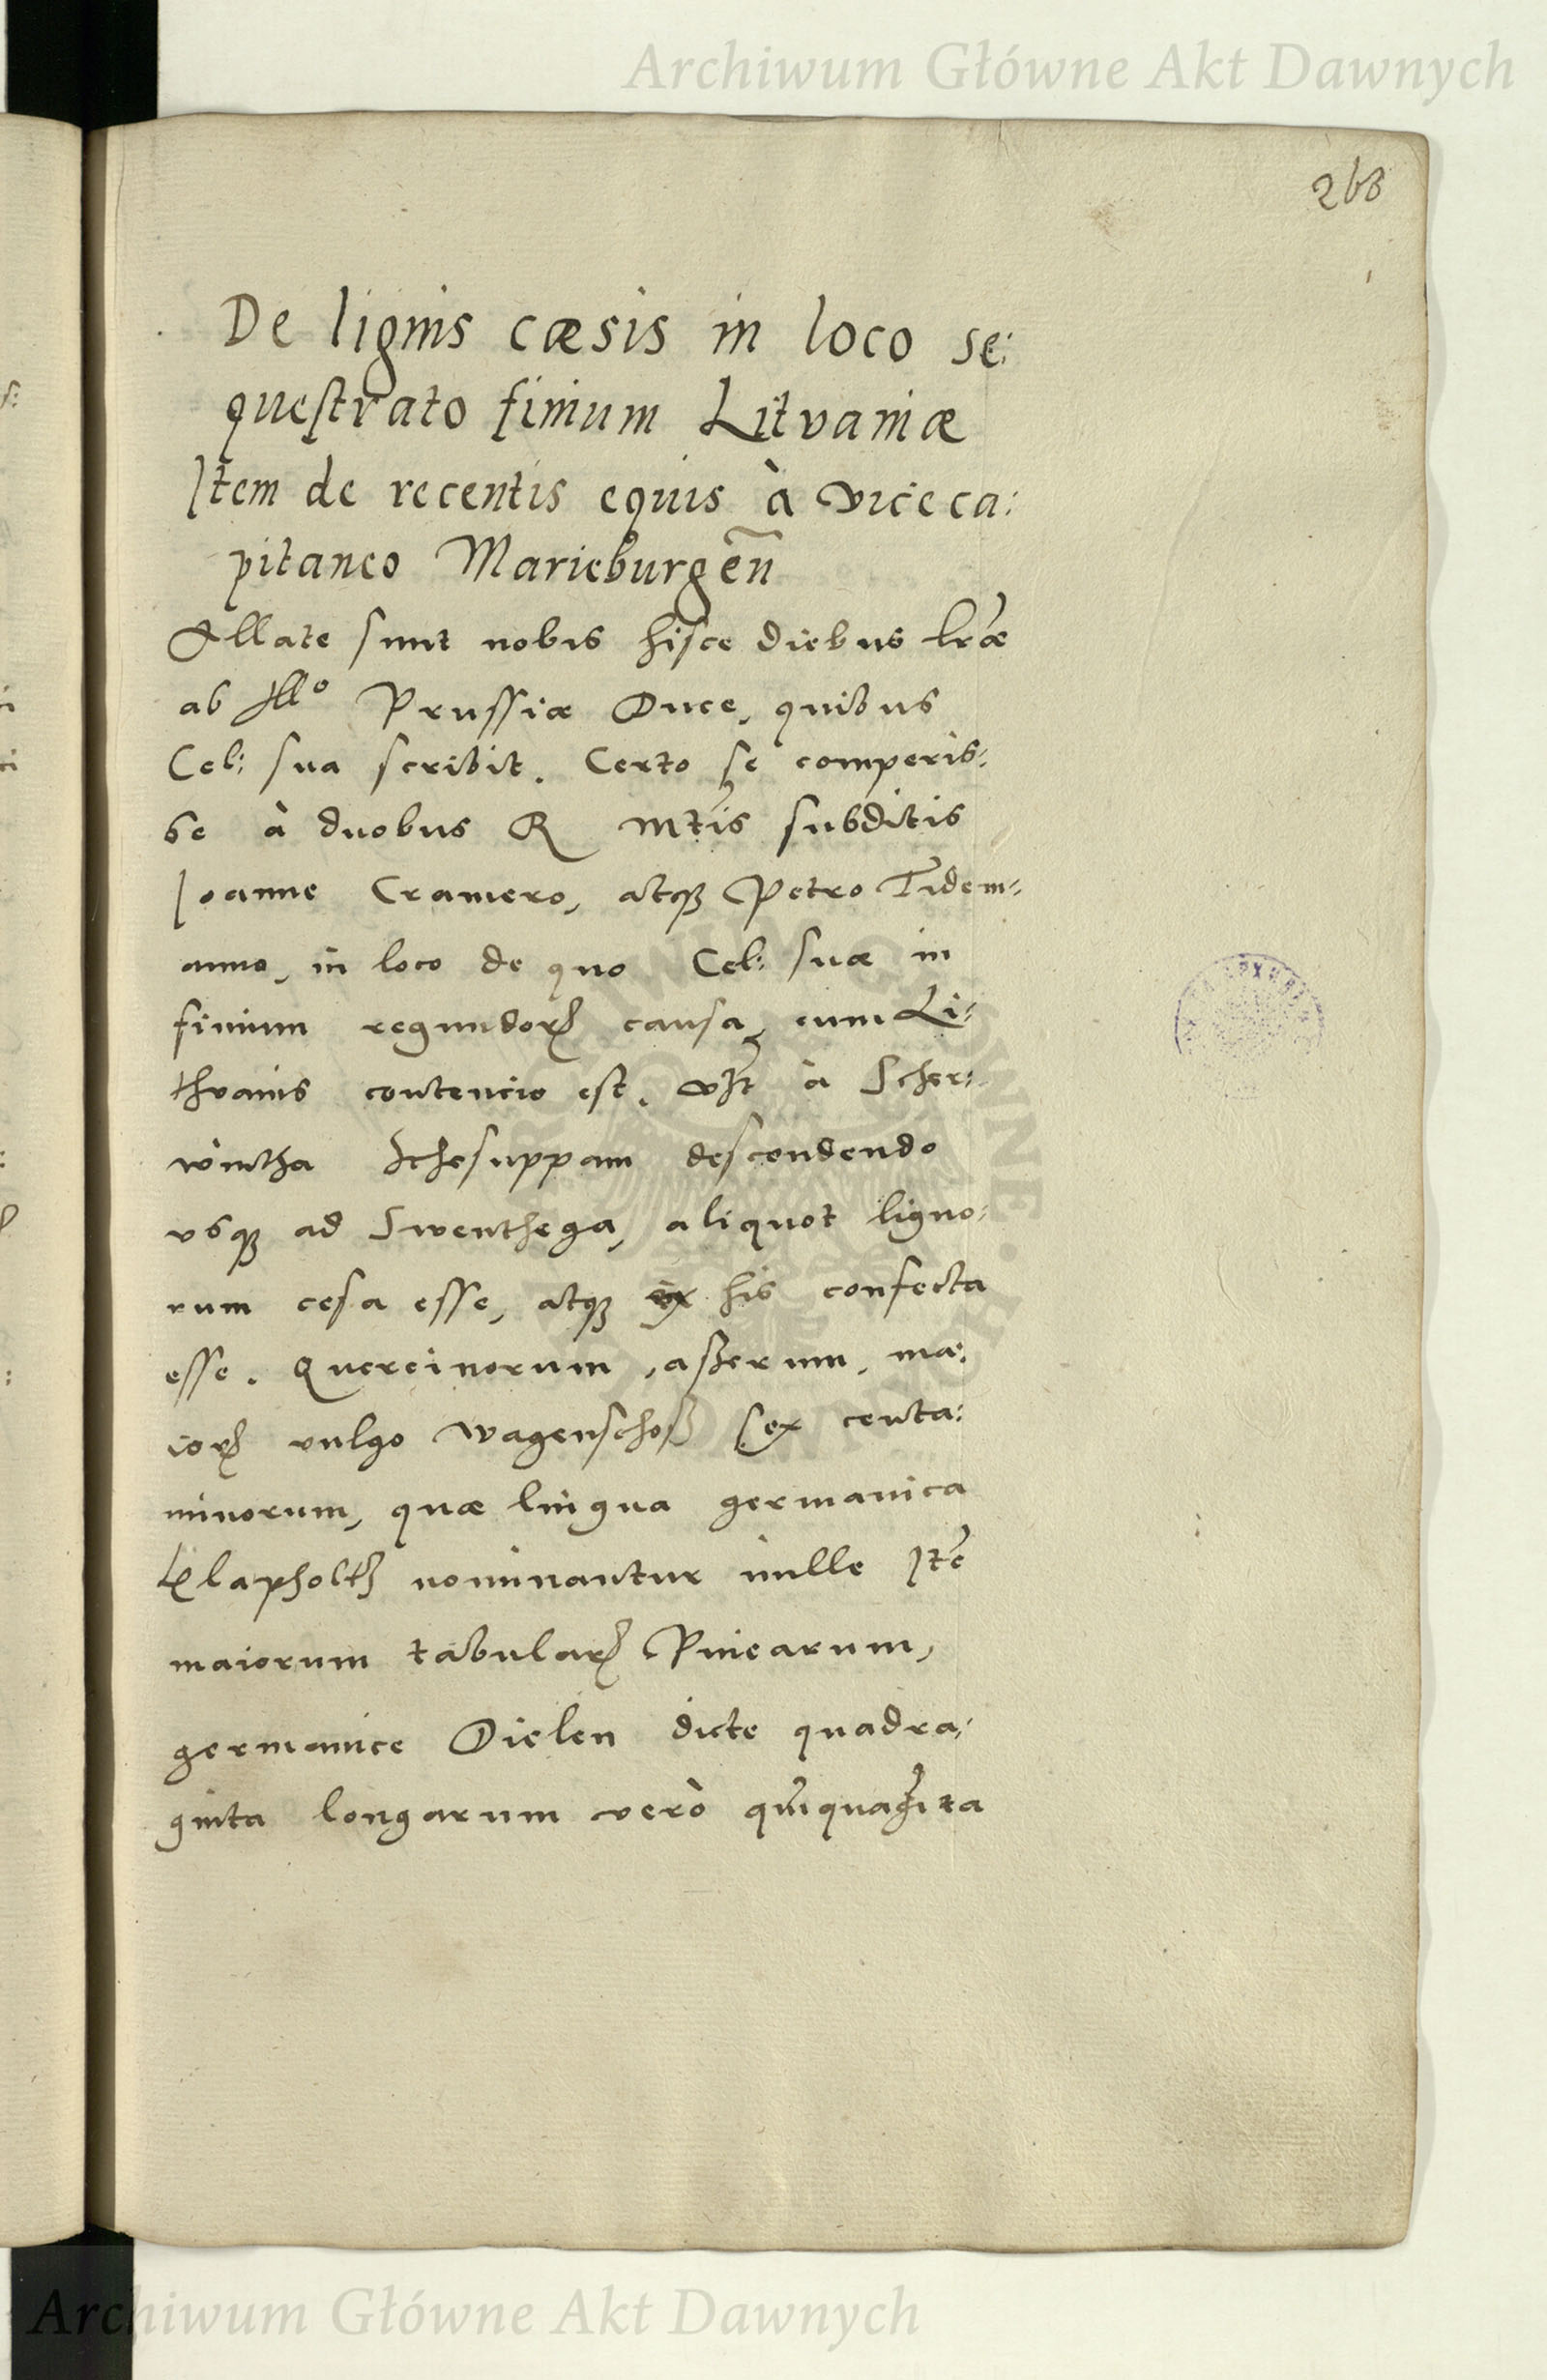 Archiwum Główne Akt Dawnych
268
De lignis cæsis in loco se:
questrato finium Litvaniæ
Item de recentis equis à vice ca:
pitaneo Marieburgen̄
Allate sunt nobis hisce diebus lr̃æ
ab Illo Prussiæ Duce, quibus
Cel: sua scribit. Certo se comperis:
se à duobus R Mtis subditis
Joanne Cramero, atq; Petro Tidem:
anno, in loco de quo Cel: suæ in
finium regundorꝝ causa, cum Li:
thvanis contencio est. vꝫt à Scher:
wintha Schesuppam descendendo
vsq; ad Swenthega, aliquot ligno:
rum cesa esse, atq; ex his confecta
esse. Quercinorum, aßerum, ma:
iorꝝ vulgo Wagenschoß sex centa:
minorum, quæ lingua germanica
Klapholtz nominantur mille Itē
maiorum tabularꝝ Pinearum,
germanice Dielen dicte quadra:
ginta longarum verò quīquagīta
Archiwum Główne Akt Dawnych